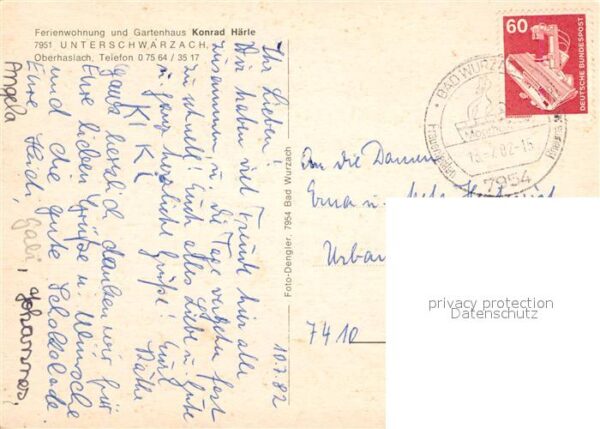 Ferienwohnung und Gartenhaus Konrad Härle
7951 UNTERSCHWARZACH,
Oberhaslach, Telefon 0 75 64 / 35 17
Ihr Lieben!
Wir haben viel Freude hier alle
zusammen u. die Tage vergehen fast
zu schnell! Euch alles Liebe u. Gute
u. ganz herzliche Grüße! Eure
KIKI Käthe
ganz herzlich danken wir für
Eure lieben Grüße u. Wünsche
und die gute Schokolade.
Eure Heidi, Gabi, Johannes,
Angela
10.7.82
Foto-Dengler, 7954 Bad Wurzach
60
DEUTSCHE BUNDESPOST
BAD WURZACH
7954
An die Damen
Erna u.
Urban
7410
privacy protection
Datenschutz